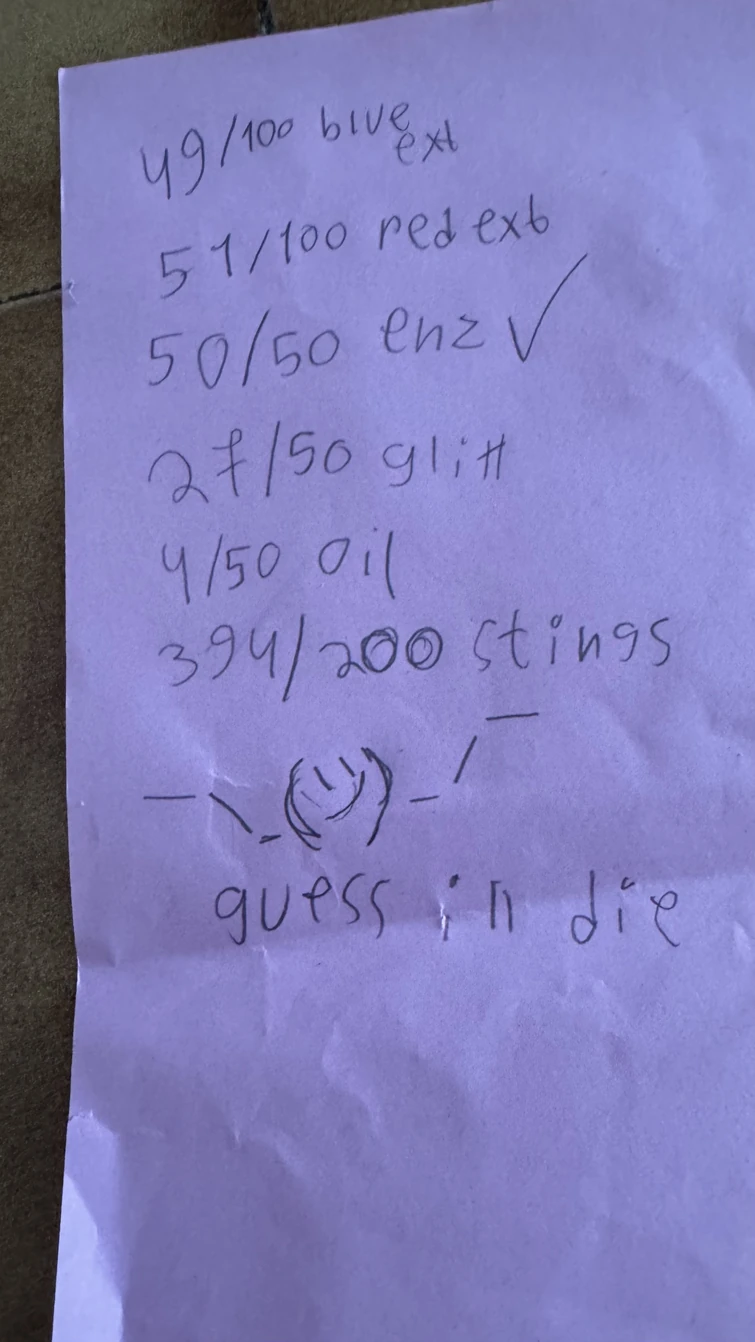 49/100 blue ext
51/100 red ext
50/50 enz ✓
27/50 glitt
4/50 oil
394/200 stings
¯\_(ツ)_/¯
guess in die